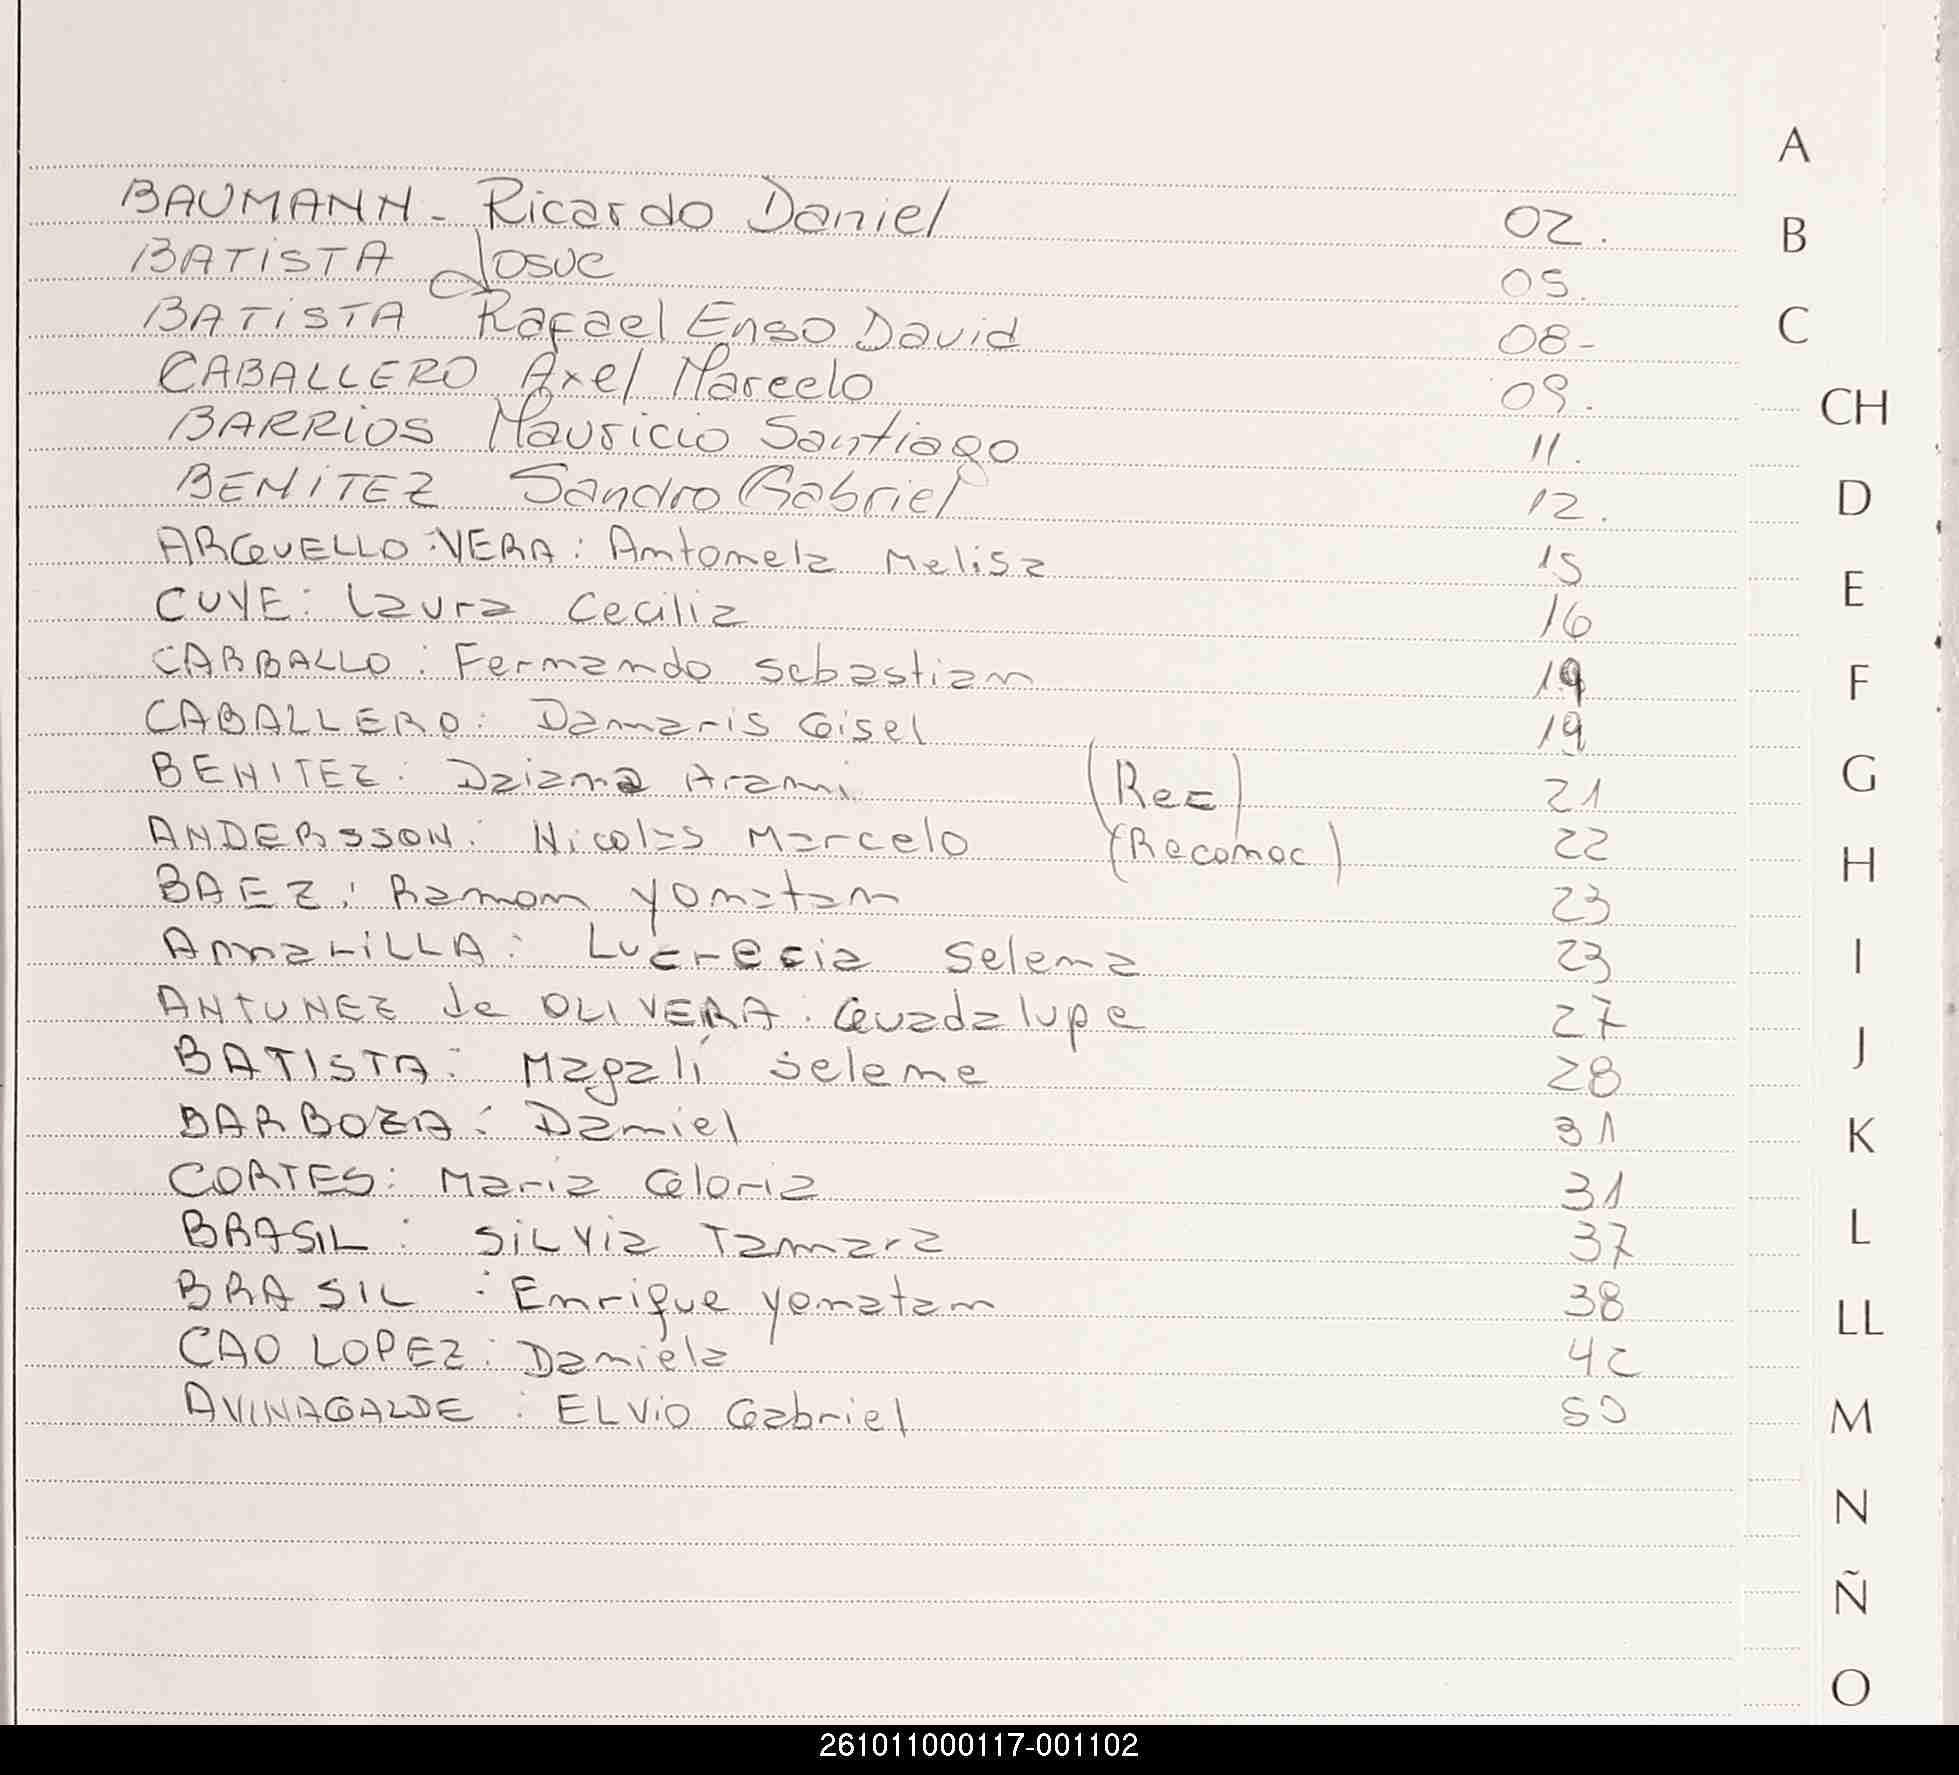 BAUMANN - Ricardo Daniel 02.
BATISTA Josue 05.
BATISTA Rafael Enso David 08-
CABALLERO Axel Marcelo 09.
BARRIOS Mauricio Santiago 11.
BENITEZ Sandro Gabriel 12.
ARGUELLO VERA: Antonela Melisa 15
CUYE: Laura Cecilia 16
CARBALLO: Fernando Sebastian 19
CABALLERO: Damaris Gisel 19
BENITEZ: Daiana Arami (Rec) 21
ANDERSSON: Nicolas Marcelo (Reconoc) 22
BAEZ: Ramon yonatan 23
AmariLLA: Lucrecia Selena 23
ANTUNEZ de OLIVERA: Guadalupe 27
BATISTA: Magalí Selene 28
BARBOZA: Daniel 31
CORTES: Maria Gloria 31
BRASIL: SiLVia Tamara 37
BRASIL: Enrique yonatan 38
CAO LOPEZ: Daniela 42
AVINAGALDE: ELVio Gabriel 50
A
B
C
CH
D
E
F
G
H
I
J
K
L
LL
M
N
Ñ
O
261011000117-001102